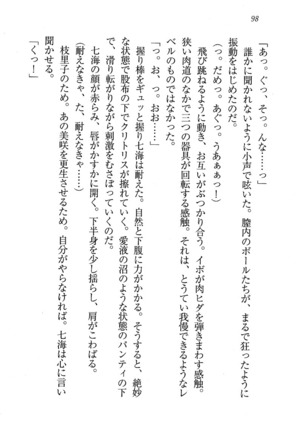 98
「あっ。ぐっ、そっ。んな……っ」
誰かに聞かれないように小声で呟いた。膣内のボールたちが、まるで狂ったように
振動をはじめたのだ。
（っ。だめっ。あぐっ。うあぁぁっー）
飛び跳ねるように動き、お互いがぶつかり合う。イボが肉ヒダを弾きまわす感触。
狭い肉道のなかで三つの器具が回転する感触。それは、とうてい我慢できるようなレ
ベルのものではない。
「っ。お、っ。おお……」
握り棒をギュッと握り七海は耐えた。自然と下腹に力がかかる。そうすると、絶妙
な状態で股布の下でクリトリスが擦れていく。愛液の沼のような状態のパンティの下
で、滑り転がりながら刺激をむさぼっていくのだ。
七海の顔が赤らみ、唇がかすかに開く。下半身を少し揺らし、肩がこわばる。
（耐えなきゃ……た、耐えなきゃ……）
枝里子のため。あの美咲を更生させるため。自分がやらなければ。七海は心に言い
聞かせる。
「くっー」